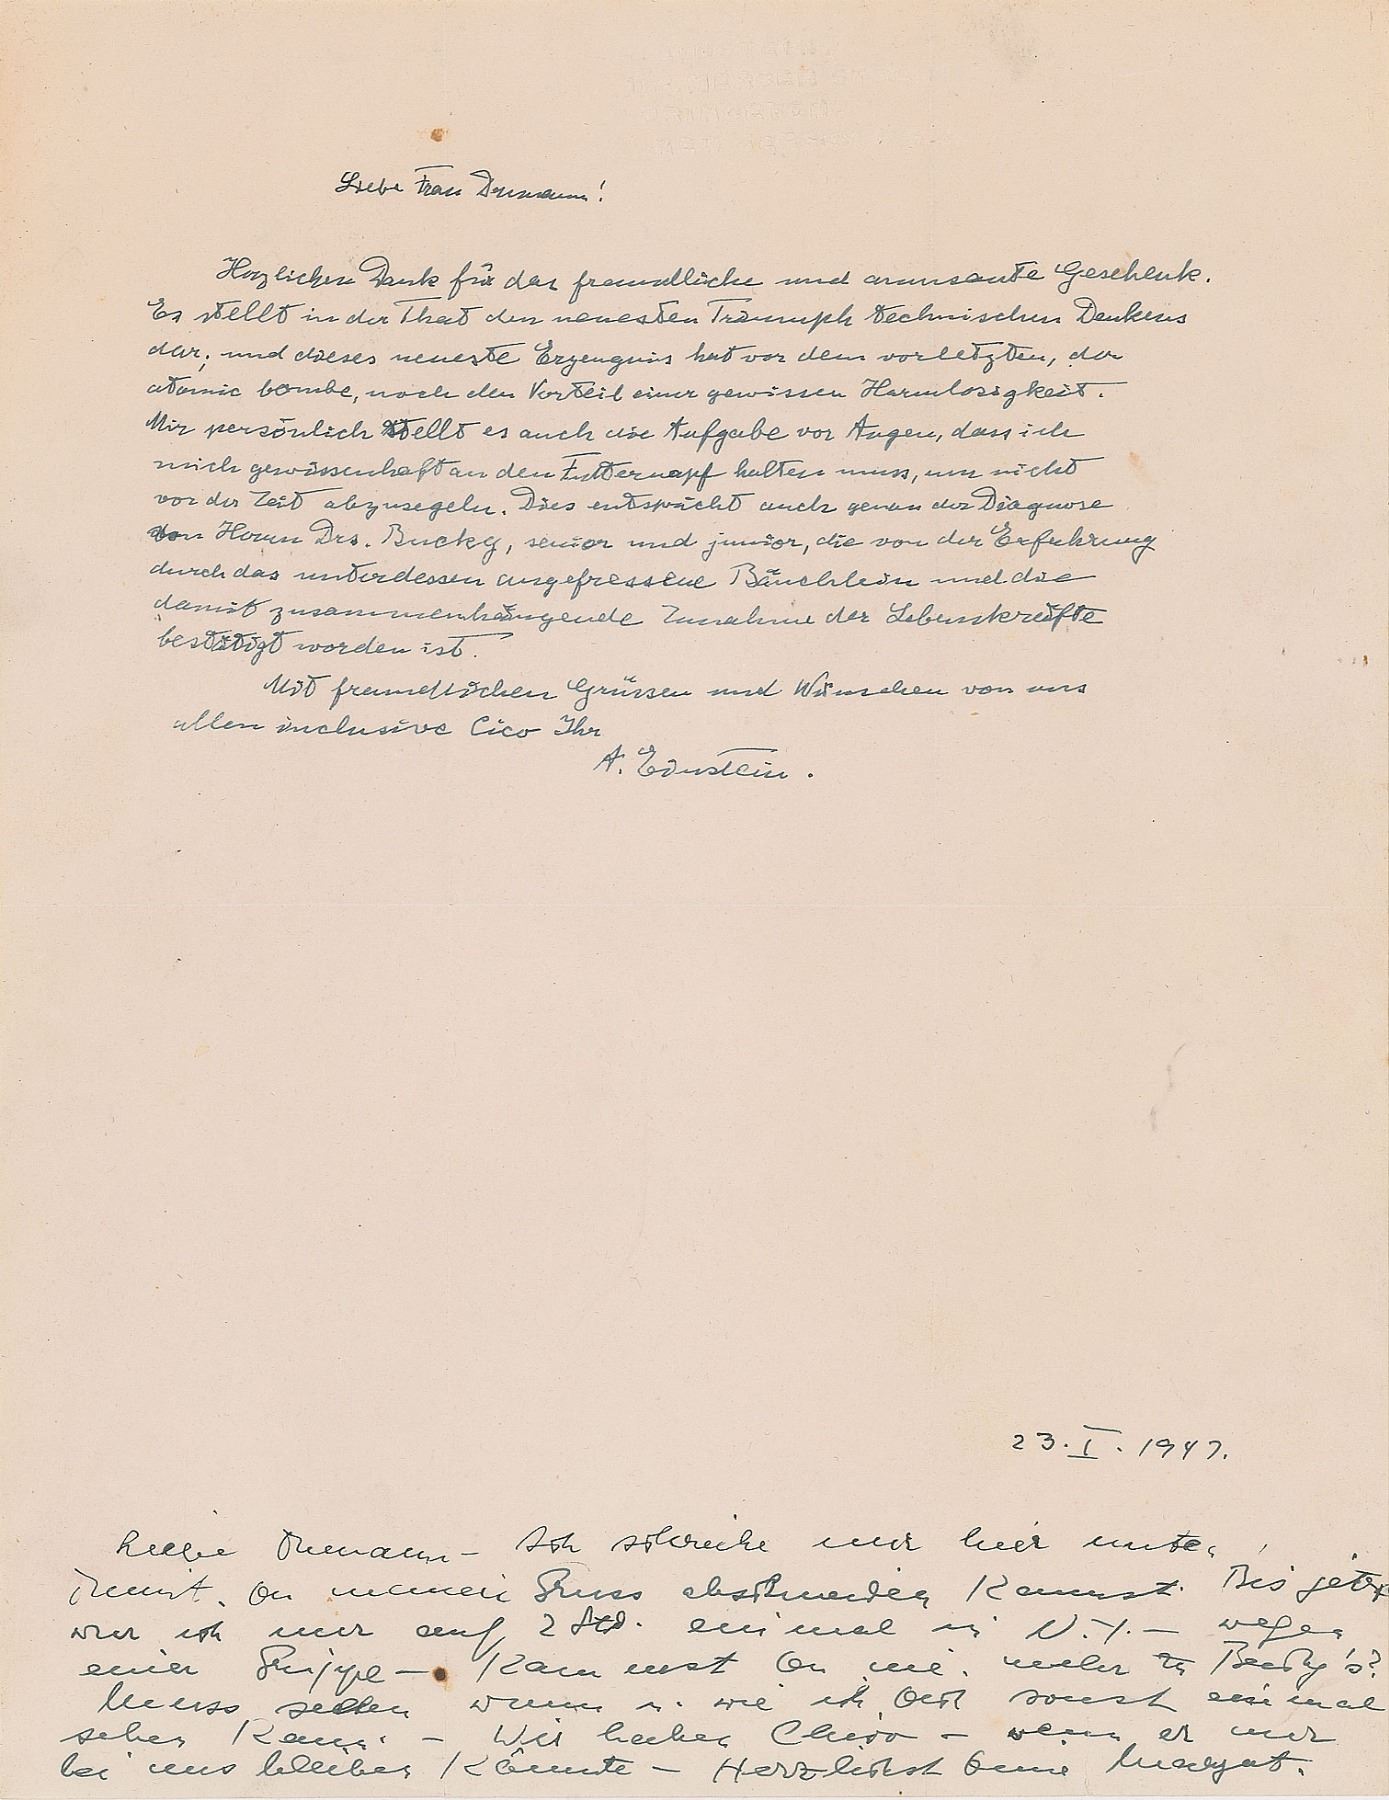 Liebe Frau Dumann!
Herzlichen Dank für das freundliche und amusante Geschenk.
Es stellt in der That den neuesten Triumph technischen Denkens
dar, und dieses neueste Erzeugnis hat vor dem vorletzten, der
atomic bombe, noch den Vorteil einer gewissen Harmlosigkeit.
Mir persönlich stellt es auch die Aufgabe vor Augen, dass ich
mich gewissenhaft an den Futternapf halten muss, um nicht
vor der Zeit abzusegeln. Dies entspricht auch genau der Diagnose
von Herrn Drs. Bucky, senior und junior, die von der Erfahrung
durch das unterdessen angefressene Bäuchlein und die
damit zusammenhängende Zunahme der Lebenskräfte
bestätigt worden ist.
Mit freundlichen Grüssen und Wünschen von uns
allen inclusive Cico Ihr
A. Einstein.
23.I.1947.
Liebe Dumann – Ich schreibe nur hier unten
damit Du meinen Gruss abschneiden kannst. Bis jetzt
war ich nur auf 2 Std. einmal in N.Y. – wegen
einer Grippe – Kommst Du nie mehr zu Bucky's?
Muss sehen wann u. wie ich Dich sonst einmal
sehen kann. – Wir haben Chico – wenn er nur
bei uns bleiben könnte – Herzlichst Deine Margot.